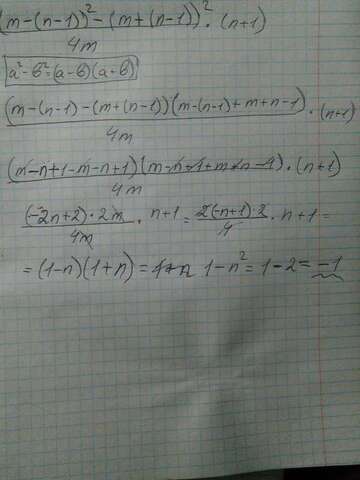 (m-(n-1))²-(m+(n-1))² · (n+1)
4m
a²-b²=(a-b)(a-b)
(m-(n-1)-(m+(n-1))(m-(n-1)+m+n-1) · (n+1)
4m
(m-n+1-m-n+1)(m-n+1+m+n-1) · (n+1)
4m
(-2n+2)·2m · n+1 = 2(-n+1)·2 · n+1 =
4m 4
= (1-n)(1+n) = 1+n 1-n² = 1-2 = -1